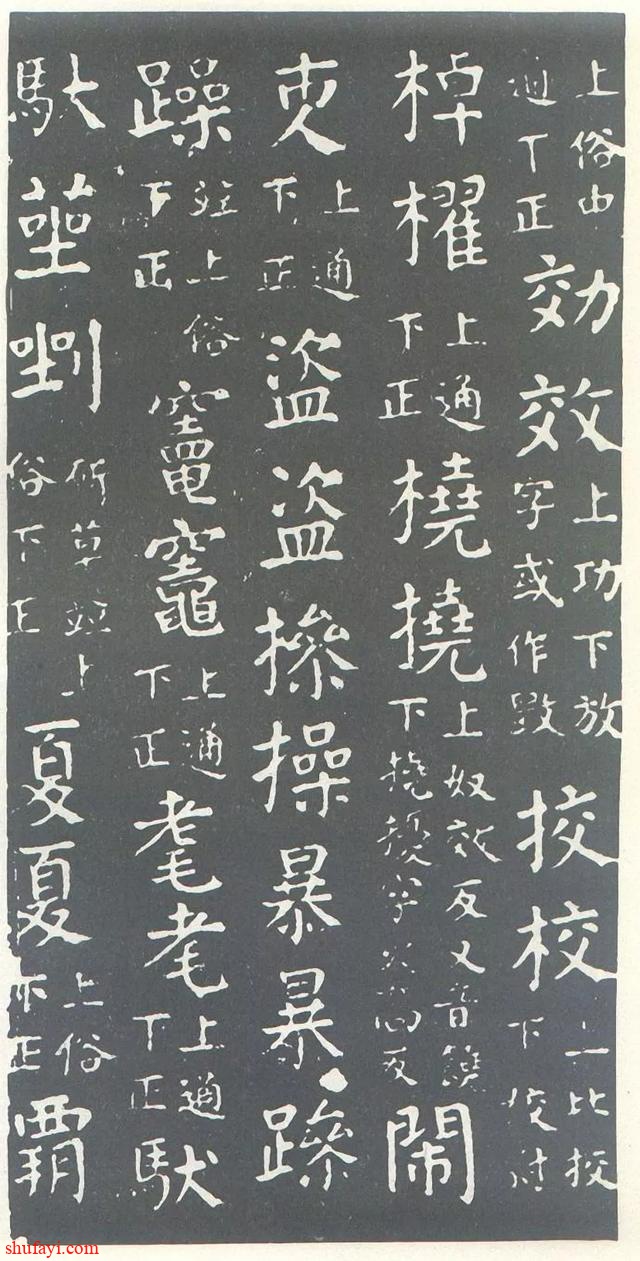 上俗由通下正効效上功下放字或作挍校上比挍下校尉
棹櫂上通下正橈撓上奴效反又音饒下撓擾字高反閙
上通下正盗盜掺操暴暴
躁並上俗下正竈竈上通下正耄耄上通下正䭾
馱莝剉斫草並上俗下正夏夏上俗下正覇
shufayi.com